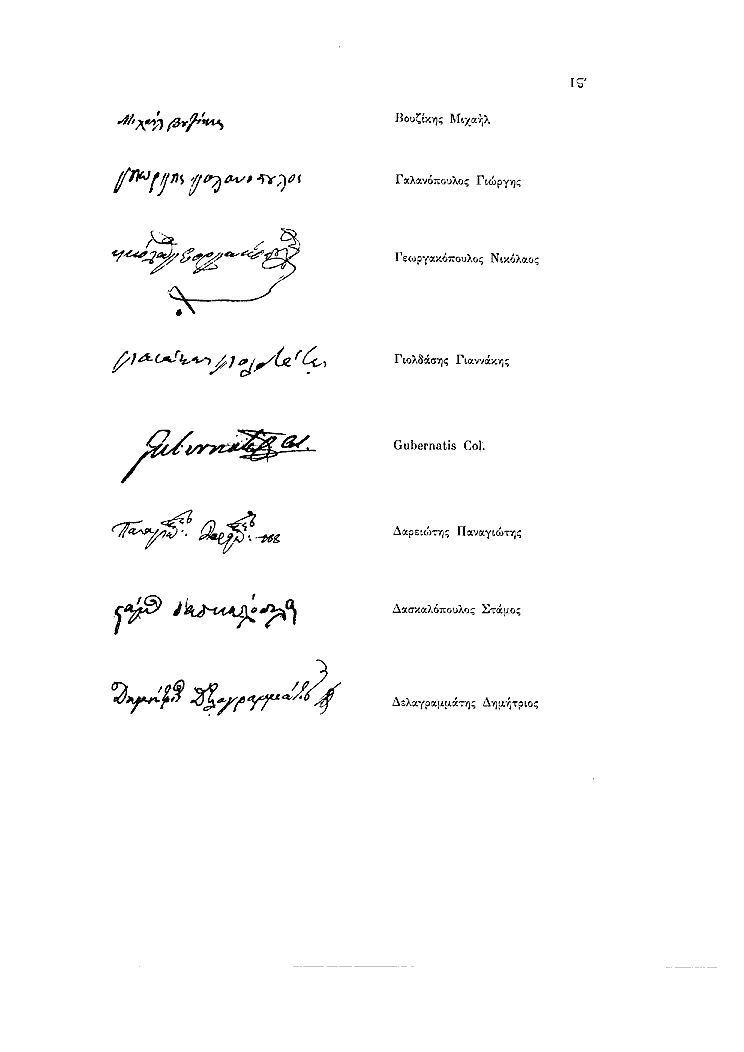 ιϛʹ
Μιχαήλ Βουζίκης Βουζίκης Μιχαὴλ
Γιώργης γαλανοπουλος Γαλανόπουλος Γιώργης
Γεωργακόπουλος Νικόλαος
Γιολδάσης Γιαννάκης
Gubernatis Col. Gubernatis Col.
Δαρειώτης Παναγιώτης
Δασκαλόπουλος Στάμος
Δελαγραμμάτης Δημήτριος